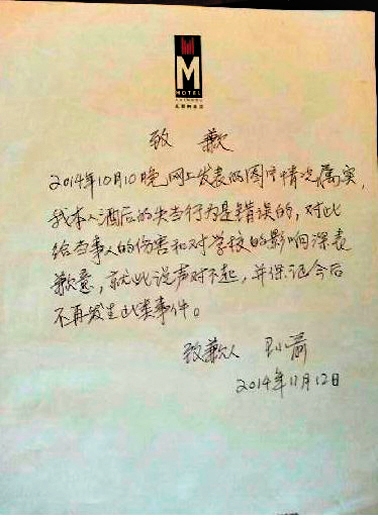 M
HOTEL
CHENGDU
致 歉
2014年10月10晚网上发表的图片情况属实,
我本人酒后的失当行为是错误的,对此
给当事人的伤害和对学校的影响深表
歉意,就此说声对不起,并保证今后
不再发生此类事件。
致歉人
2014年11月12日